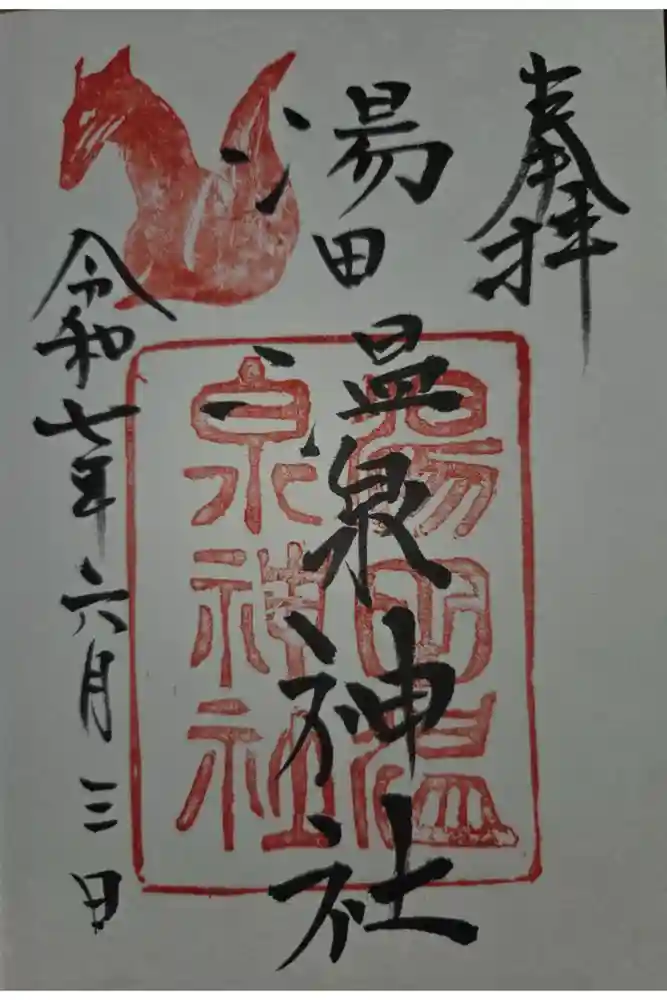 奉拝
湯田温泉神社
湯田温
泉神社
令和七年六月三日